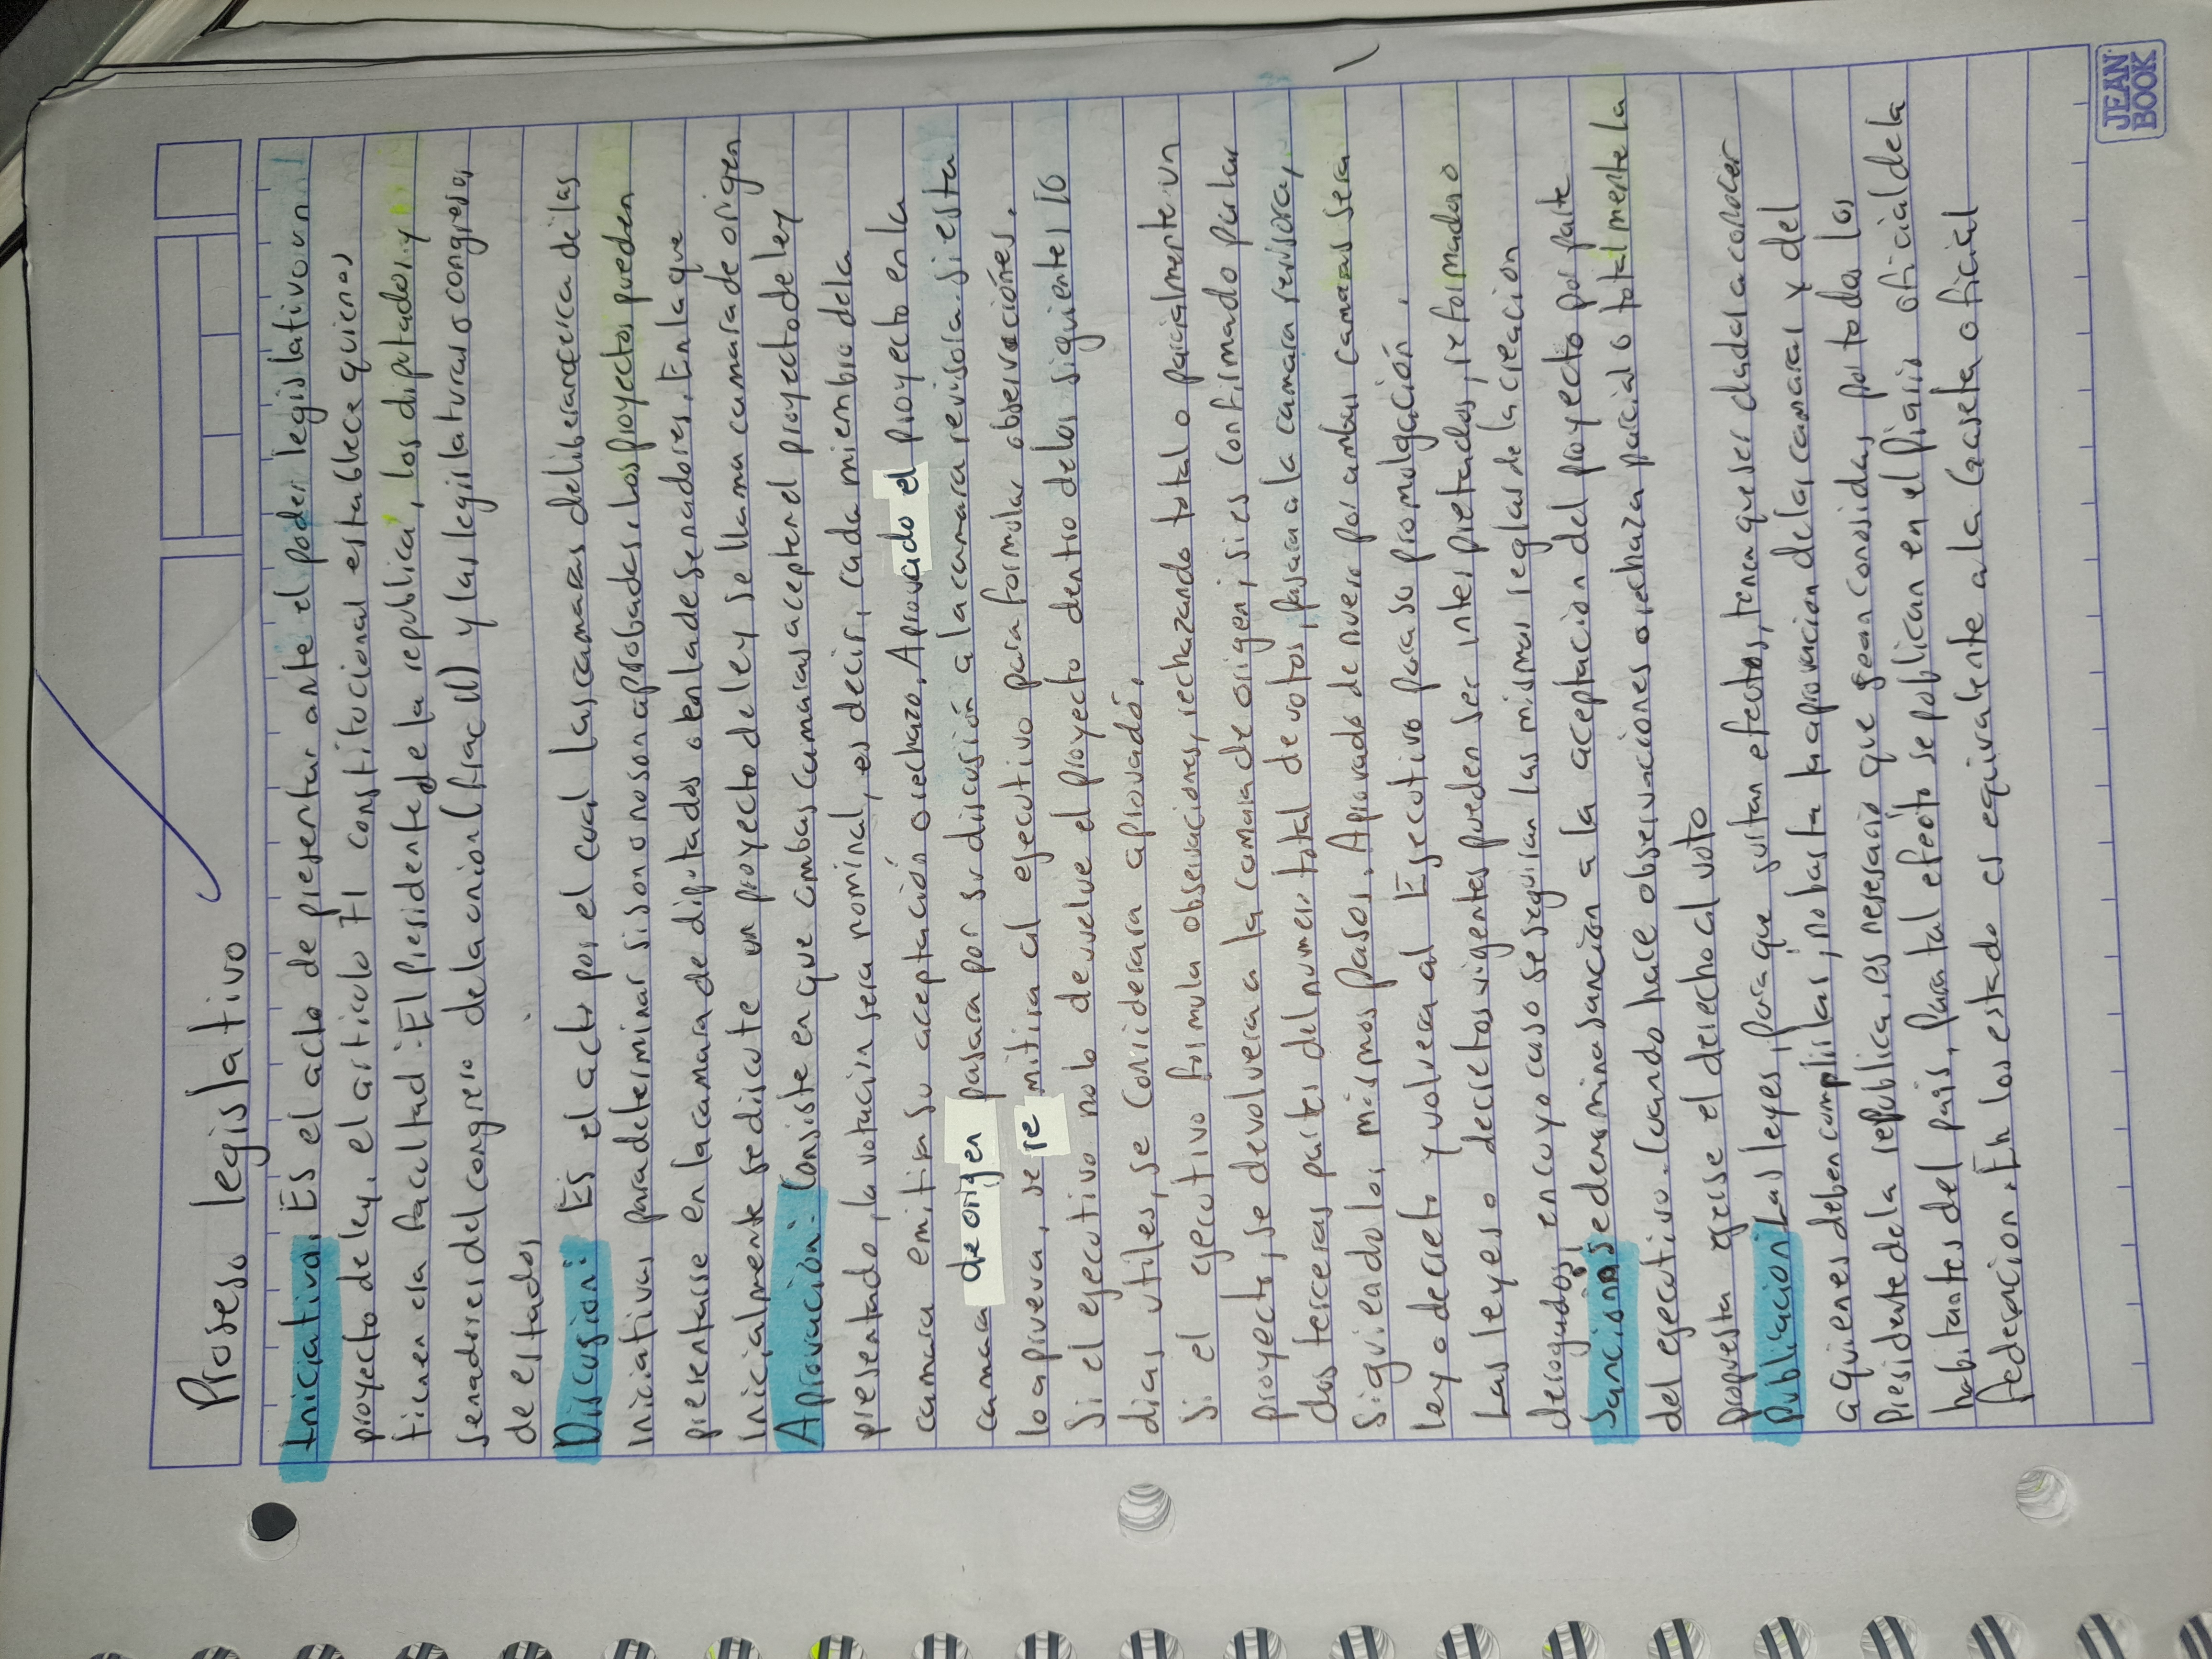 Proseso legislativo
Iniciativa. Es el acto de presentar ante el poder legislativo un
proyecto de ley. el articulo 71 constitucional establece quienes
tienen esa facultad: El Presidente de la republica, los diputados y
senadores del congreso de la union (frac II) y las legislaturas o congresos
de estados
Discusion: Es el acto por el cual las camaras deliberan acerca de las
iniciativas para determinar si son o no son aprobadas. Los proyectos pueden
presentarse en la camara de diputados o en la de senadores. En la que
inicialmente se discute un proyecto de ley se llama camara de origen
Aprovación: Consiste en que ambas camaras acepten el proyecto de ley
presentado, la votacion sera nominal, es decir, cada miembro de la
camara emitira su aceptación o rechazo. Aprovado el proyecto en la
camara de origen pasara por su discusión a la camara revisora. Si esta
lo aprueva, se remitira al ejecutivo para formular observaciónes.
Si el ejecutivo no lo devuelve el proyecto dentro de los siguientes 10
dias utiles, se considerara aprovado.
Si el ejecutivo formula observaciones, rechazando total o parcialmente un
proyecto, se devolvera a la camara de origen; si es confirmado por las
dos terceras partes del numero total de votos, pasara a la camara revisora,
Siguiendo los mismos pasos. Aprovado de nuevo por ambas camaras sera
ley o decreto y volvera al Ejecutivo para su promolgación.
Las leyes o decretos vigentes pueden ser interpretados, reformados o
derogados, en cuyo caso se seguiran las mismas reglas de la creacion
Sanción: se denomina sanción a la aceptacion del proyecto por parte
del ejecutivo. Cuando hace observaciones o rechaza parcial o totalmente la
propuesta ejerise el derecho al voto
Publicacion: Las leyes, para que surtan efectos, tienen que ser dadas a conocer
a quienes deben cumplirlas; no basta la aprovacion de las camaras y del
Presidente de la republica, es nesesario que sean conosidas por todos los
habitantes del pais. Para tal efecto se publican en el Diario oficial de la
federacion. En los estado es equivalente a la Gaseta oficial
JEAN BOOK